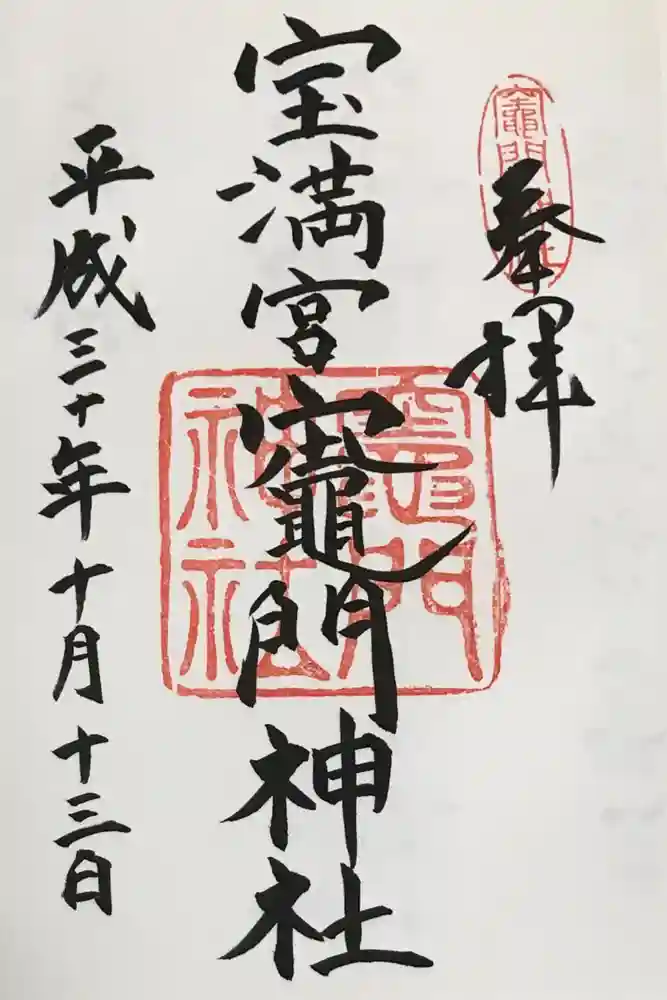 奉拝
宝満宮竈門神社
平成三十年十月十三日
竈門神社
竈門神社